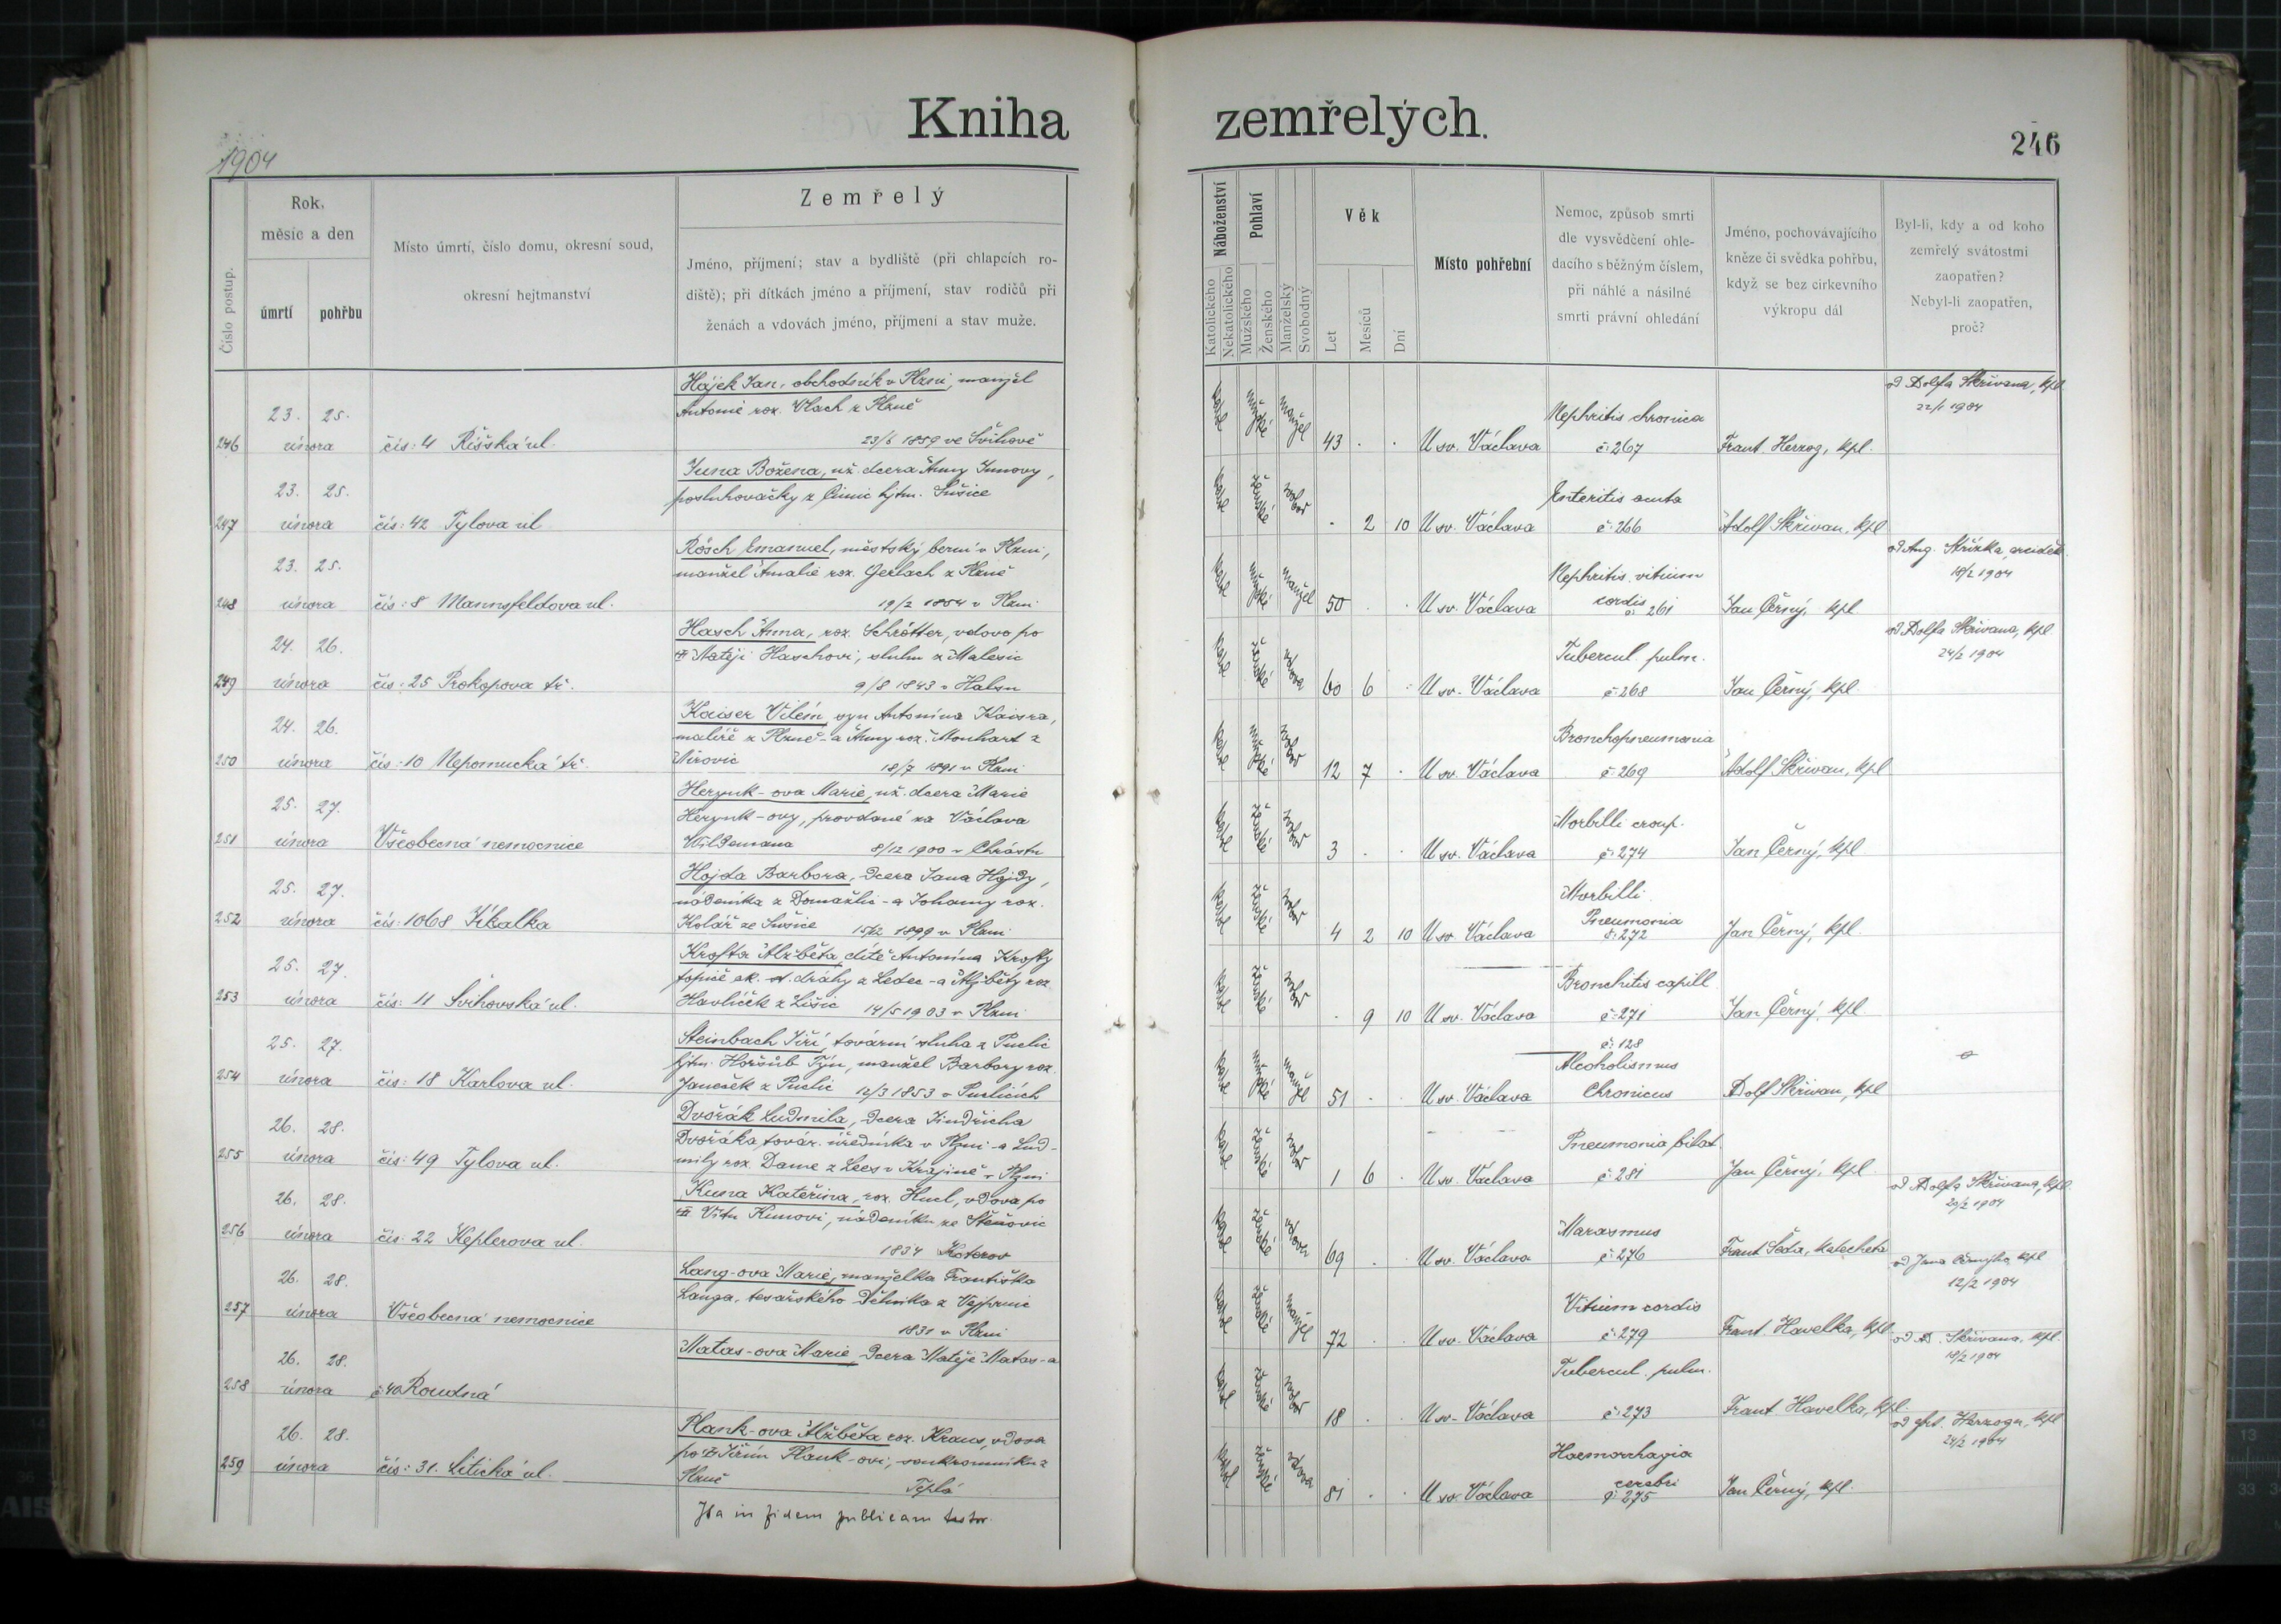 Kniha zemřelých.
246
1904
Číslo postup.
Rok, měsíc a den
úmrtí
pohřbu
Místo úmrtí, číslo domu, okresní soud,
okresní hejtmanství
Zemřelý
Jméno, příjmení; stav a bydliště (při chlapcích ro-
diště); při dítkách jméno a příjmení, stav rodičů při
ženách a vdovách jméno, příjmení a stav muže.
Náboženství
Katolického
Nekatolického
Pohlaví
Mužského
Ženského
Manželský
Svobodný
Věk
Let
Měsíců
Dní
Místo pohřební
Nemoc, způsob smrti
dle vysvědčení ohle-
dacího s běžným číslem,
při náhlé a násilné
smrti právní ohledání
Jméno, pochovávajícího
kněze či svědka pohřbu,
když se bez církevního
výkropu dál
Byl-li, kdy a od koho
zemřelý svátostmi
zaopatřen?
Nebyl-li zaopatřen,
proč?
246 23. 25. února čís: 4 Říšská ul.
Hájek Jan, obchodník v Plzni, manžel
Antonie roz. Vlach z Plzně
23/6 1859 ve Švihově
43 U sv. Václava
Nephritis chronica
č: 267
Frant. Herzog, kpl.
od Adolfa Skřivana, kpl.
22/1 1904
247 23. 25. února čís: 42 Tylova ul
Juna Božena, nž. dcera Anny Junovy,
posluhovačky z hjtm. Sušice
2 10 U sv. Václava
Enteritis acuta
č: 266
Adolf Skřivan, kpl
248 23. 25. února čís: 8 Mannsfeldova ul.
Rösch Emanuel, městský berní v Plzni,
manžel Amalie roz. Gerlach z Plzně
19/2 1854 v Plzni
50 U sv. Václava
Nephritis, vitium
cordis č: 261
Jan Černý, kpl
od Aug. Střízka, arciděk.
18/2 1904
249 24. 26. února čís: 25 Prokopova tř.
Hasch Anna, roz. Schrötter, vdova po
Matěji Haschovi, sluhu z Malesic
9/8 1843 v
60 6 U sv. Václava
Tubercul. pulm.
č: 268
Jan Černý, kpl
od Adolfa Skřivana, kpl.
24/2 1904
250 24. 26. února čís: 10 Nepomucká tř.
Kaiser Vilém, syn Antonína Kaisra,
malíře z Plzně a Anny roz. Monhart z
Nírovic
18/7 1891 v Plzni
12 7 U sv. Václava
Bronchopneumonia
č: 269
Adolf Skřivan, kpl
251 25. 27. února Všeobecná nemocnice
Herynk-ova Marie, nž. dcera Marie
Herynk-ovy, provdané za Václava
Wildemana 8/12 1900 v Chrástu
3 U sv. Václava
Morbilli croup.
č: 274
Jan Černý, kpl
252 25. 27. února čís: 1068 Jíkalka
Hojda Barbora, dcera Jana Hojdy,
nádeníka z Domažlic a Johanny roz.
Kolář ze Sušice 15/12 1899 v Plzni
4 2 10 U sv. Václava
Morbilli
Pneumonia
č: 272
Jan Černý, kpl.
253 25. 27. února čís: 11 Švihovská ul.
Krofta Alžběta, dítě Antonína Krofty
topiče st. dráhy z Ledec a Alžběty roz
Havlíček z Lišic 14/5 1903 v Plzni
9 10 U sv. Václava
Bronchitis capill
č: 271
Jan Černý, kpl.
254 25. 27. února čís: 18 Karlova ul.
Steinbach Jiří, tovární sluha z Puclic
hjtm. Horšův Týn, manžel Barbory roz.
Janeček z Puclic 12/3 1853 v Puclicích
51 U sv. Václava
č: 128
Alcoholismus
Chronicus
Adolf Skřivan, kpl
255 26. 28. února čís: 49 Tylova ul.
Dvořák Ludmila, dcera Jindřicha
Dvořáka, továr. úředníka v Plzni a Lud-
mily roz. Dame z Lees v Krajině v Plzni
1 6 U sv. Václava
Pneumonia bilat
č: 281
Jan Černý, kpl.
256 26. 28. února čís: 22 Keplerova ul.
Kuna Kateřina, roz. Hucl, vdova po
Vítu Kunovi, nádeníku ze Štěnovic
1834 Koterov
69 U sv. Václava
Marasmus
č: 276
Frant Šeda, katecheta
od Adolfa Skřivana, kpl.
20/2 1904
257 26. 28. února Všeobecná nemocnice
Lang-ova Marie, manželka Františka
Langa, tesařského dělníka z Vejprnic
1831 v Plzni
72 U sv. Václava
Vitium cordis
č: 279
Frant. Havelka, kpl
od Jana Černýho, kpl
12/2 1904
258 26. 28. února č: 40 Roudná
Matas-ova Marie, dcera Matěje Matas-a
18 U sv. Václava
Tubercul. pulm.
č: 273
Frant. Havelka, kpl.
od A. Skřivana, kpl.
18/2 1904
259 26. 28. února čís: 31. Litická ul.
Plank-ova Alžběta roz. Kraus, vdova
po Jiřím Plank-ovi, soukromníku z
Plzně Teplá
81 U sv. Václava
Haemorrhagia
cerebri
č: 275
Jan Černý, kpl.
od Frt. Herzoga, kpl
24/2 1904
Ita in fidem publicam testor.